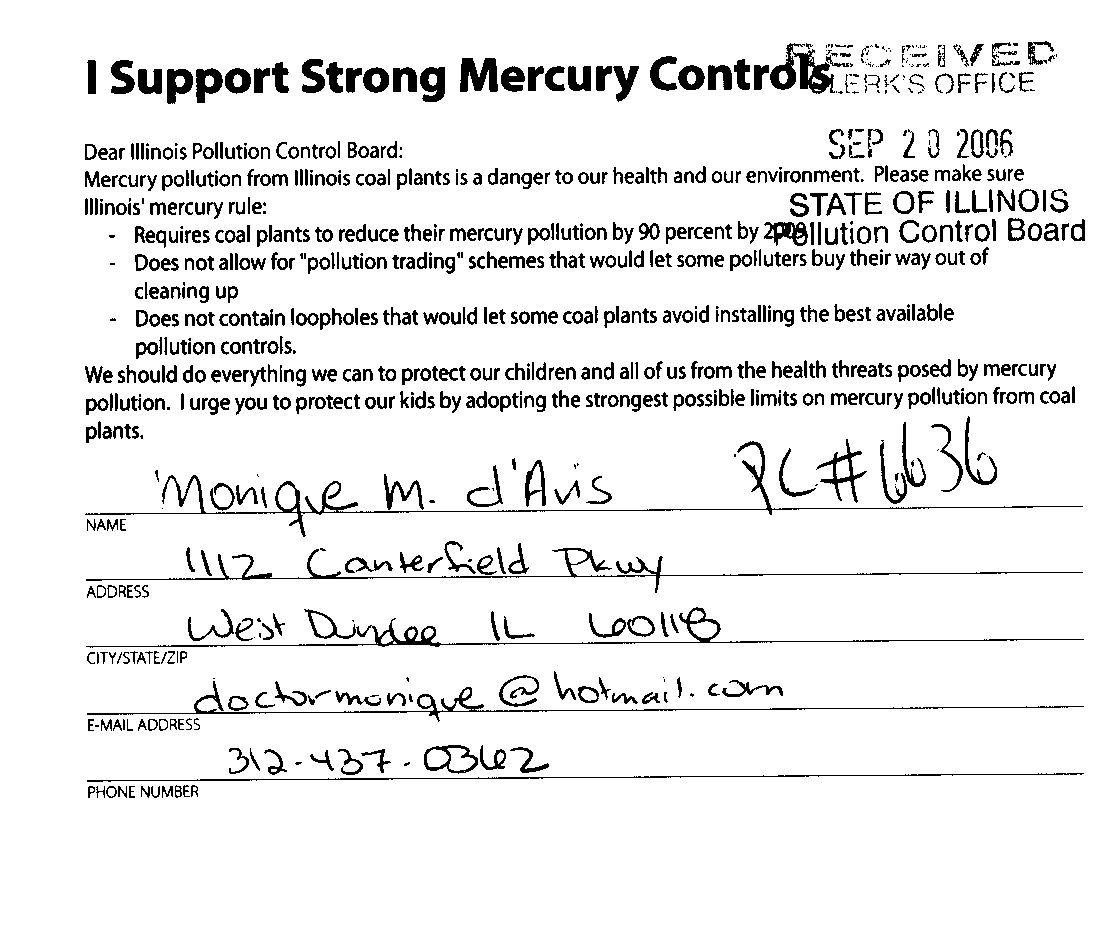 I Support Strong Mercury Controls
RECEIVED
CLERK'S OFFICE
SEP 20 2006
STATE OF ILLINOIS
Pollution Control Board
Dear Illinois Pollution Control Board:
Mercury pollution from Illinois coal plants is a danger to our health and our environment. Please make sure
Illinois' mercury rule:
- Requires coal plants to reduce their mercury pollution by 90 percent by
- Does not allow for "pollution trading" schemes that would let some polluters buy their way out of
cleaning up
- Does not contain loopholes that would let some coal plants avoid installing the best available
pollution controls.
We should do everything we can to protect our children and all of us from the health threats posed by mercury
pollution. I urge you to protect our kids by adopting the strongest possible limits on mercury pollution from coal
plants.
Monique M. d'Avis PC#6636
NAME
1112 Canterfield Pkwy
ADDRESS
West Dundee IL 60118
CITY/STATE/ZIP
doctormonique@hotmail.com
E-MAIL ADDRESS
312-437-0362
PHONE NUMBER